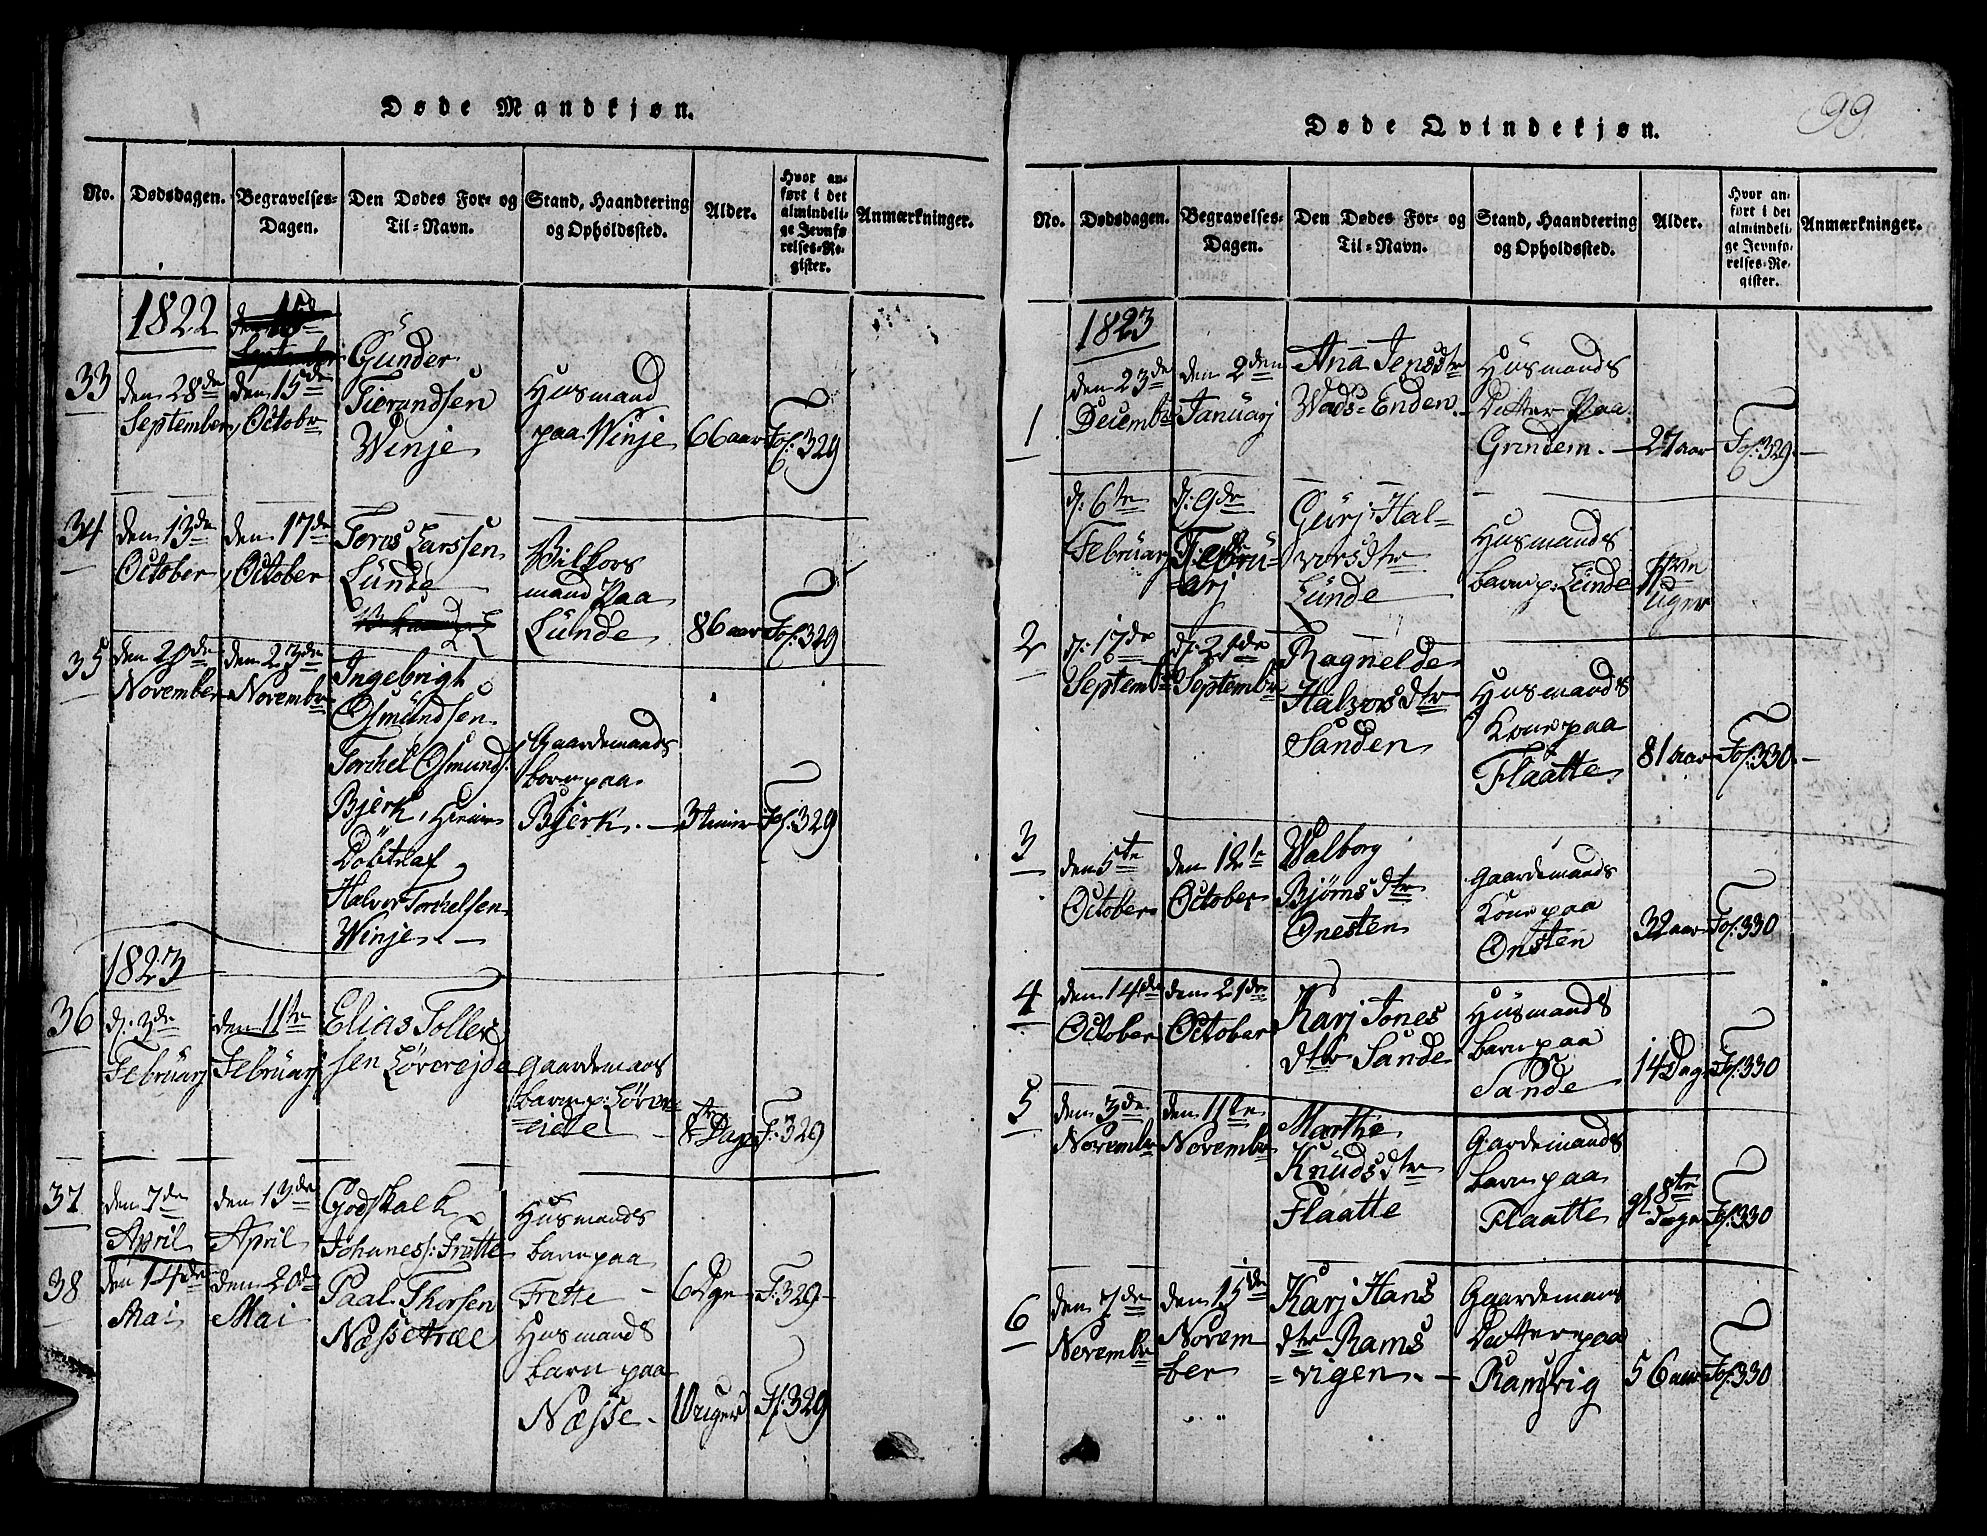 Døde Mandkjøn.
No.
Dødsdagen.
Begravelses-
Dagen.
Den Dødes For- og
Til-Navn.
Stand, Haandtering
og Opholdssted.
Alder.
Hvor an-
ført i det
almindeli-
ge Jevnfø-
relses-Re-
gister.
Anmærkninger.
1822
33
den 28de
September
den 15de
Octobr
Gunder
Tierandsen
Winje
Husmand
paa Winje
66 aar
Fol: 329
34
den 13de
October
den 17de
October
Toros Larssen
Lunde
Vilkors
mand paa
Lunde
86 aar
Fol: 329
35
den 20de
November
den 23de
Novembr
Ingebrigt
Osmundsen
Torchel Osmunds:
Bjerk, Hiemme
Döbt af
Halvor Torchelsen
Winje.
Gaardemands
barn paa
Bjerk.
3 timer
Fol: 329
1823
36
d: 3de
Februarj
den 11te
Februarj
Elias Tollers
sen Lövrejde
Gaardemans
barn p: Lövr
eide
8te Dage
F: 329
37
den 7de
April
den 13de
April
Godskalk
Johaness: Frette
Husmands
barn paa
Frette
6 Dge
F: 329
38
den 14de
Mai
den 20de
Mai
Paal Thorsen
Næssetræe
Husmands
barn paa
Næsse
10 uger
Fol: 329
99
Døde Qvindekjøn.
No.
Dødsdagen.
Begravelses-
Dagen.
Den Dødes For- og
Til-Navn.
Stand, Haandtering
og Opholdssted.
Alder.
Hvor an-
ført i det
almindeli-
ge Jevnfø-
relses-Re-
gister.
Anmærkninger.
1823
1
den 23de
Decembr
den 2den
Januarj
Ana Jensdtr
Wads-Enden
Husmands
Datter paa
Grindem.
27 aar
Fol: 329
d: 6te
Februarj
d: 9de
Febru-
arj
Gurj Hal-
vorsdtr
Lunde
Husmands
barn p: Lunde
uger
2
d: 17de
Septembr
d: 21de
Septembr
Ragnelde
Halvorsdtr
Sanden
Husmands
Kone paa
Flaatte
81 aar
Fol: 330
3
den 5te
October
den 12te
October
Walborg
Bjørnsdtr
Onesten
Gaardemands
Kone paa
Onsten
32 aar
Fol: 330
4
den 14de
October
den 21de
October
Karj Jones
dtr Sande
Husmands
barn paa
Sande
14 Dag
Fol: 330
5
den 3de
Novembr
den 11te
Novembr
Marthe
Knudsdtr
Flaatte
Gardemands
barn paa
Flaatte
gl 8te
dage
Fol: 330
6
den 7de
Novembr
den 15de
Novem
ber
Karj Hans
dtr Rams
vigen.
Gaardemans
Datter paa
Ramsvig
56 aar
Fol: 330